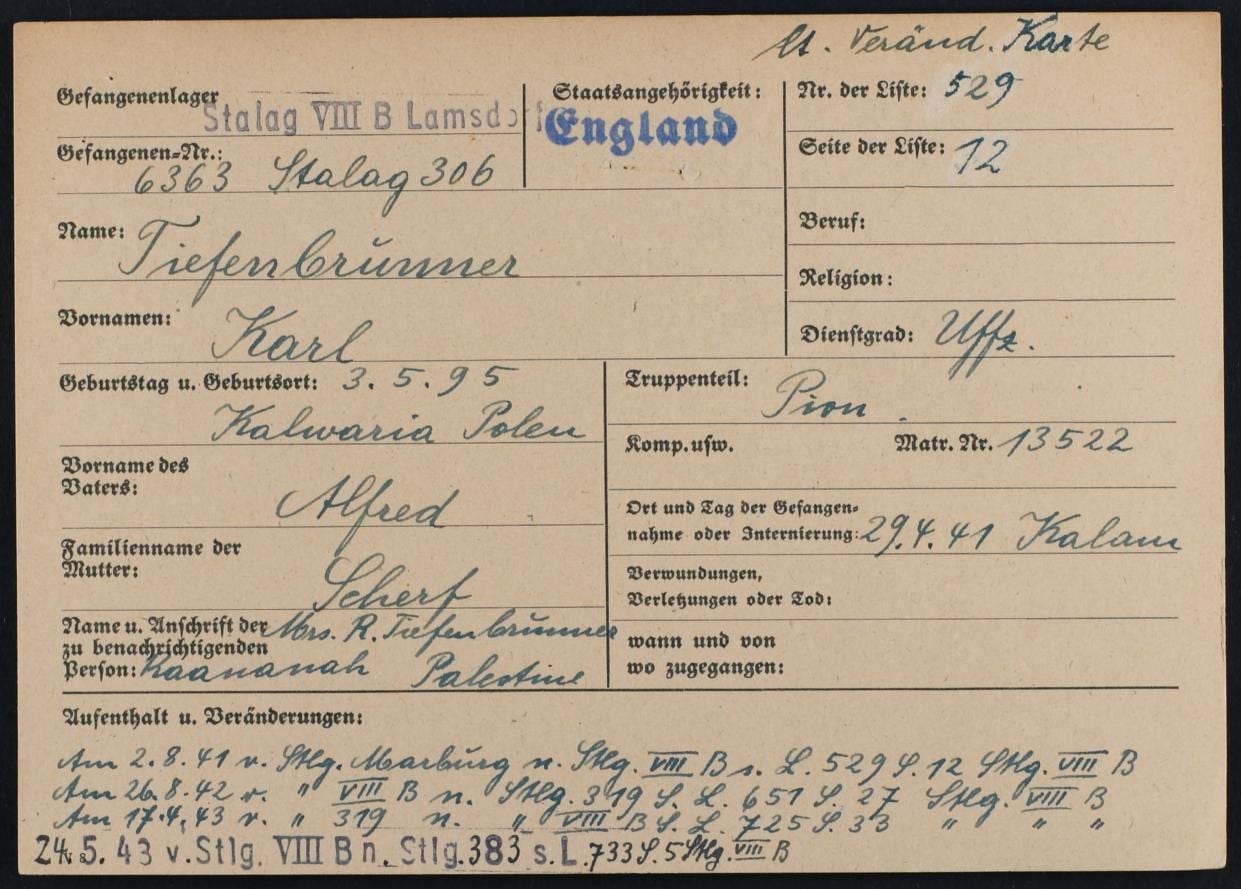 lt. Veränd. Karte
Gefangenenlager Stalag VIII B Lamsdorf
Staatsangehörigkeit: England
Nr. der Liste: 529
Gefangenen-Nr.: 6363 Stalag 306
Seite der Liste: 12
Name: Tiefenbrunner
Beruf:
Religion:
Vornamen: Karl
Dienstgrad: Uffz.
Geburtstag u. Geburtsort: 3.5.95
Kalwaria Polen
Truppenteil: Pion.
Komp. usw. Matr. Nr. 13522
Vorname des
Vaters: Alfred
Ort und Tag der Gefangen-
nahme oder Internierung: 29.4.41 Kalam
Familienname der
Mutter: Scherf
Verwundungen,
Verletzungen oder Tod:
Name u. Anschrift der Mrs. R. Tiefenbrunner
zu benachrichtigenden
Person: Raananah Palestine
wann und von
wo zugegangen:
Aufenthalt u. Veränderungen:
Am 2.8.41 v. Stlg. Marburg n. Stlg. VIII B s. L. 529 S. 12 Stlg. VIII B
Am 26.8.42 v. " VIII B n. Stlg. 319 S. L. 651 S. 27 Stlg. VIII B
Am 17.4.43 v. " 319 n. " VIII B S. L. 725 S. 33 " " "
24. 5. 43 v. Stlg. VIII B n. Stlg. 383 s. L. 733 S. 5 Stlg. VIII B